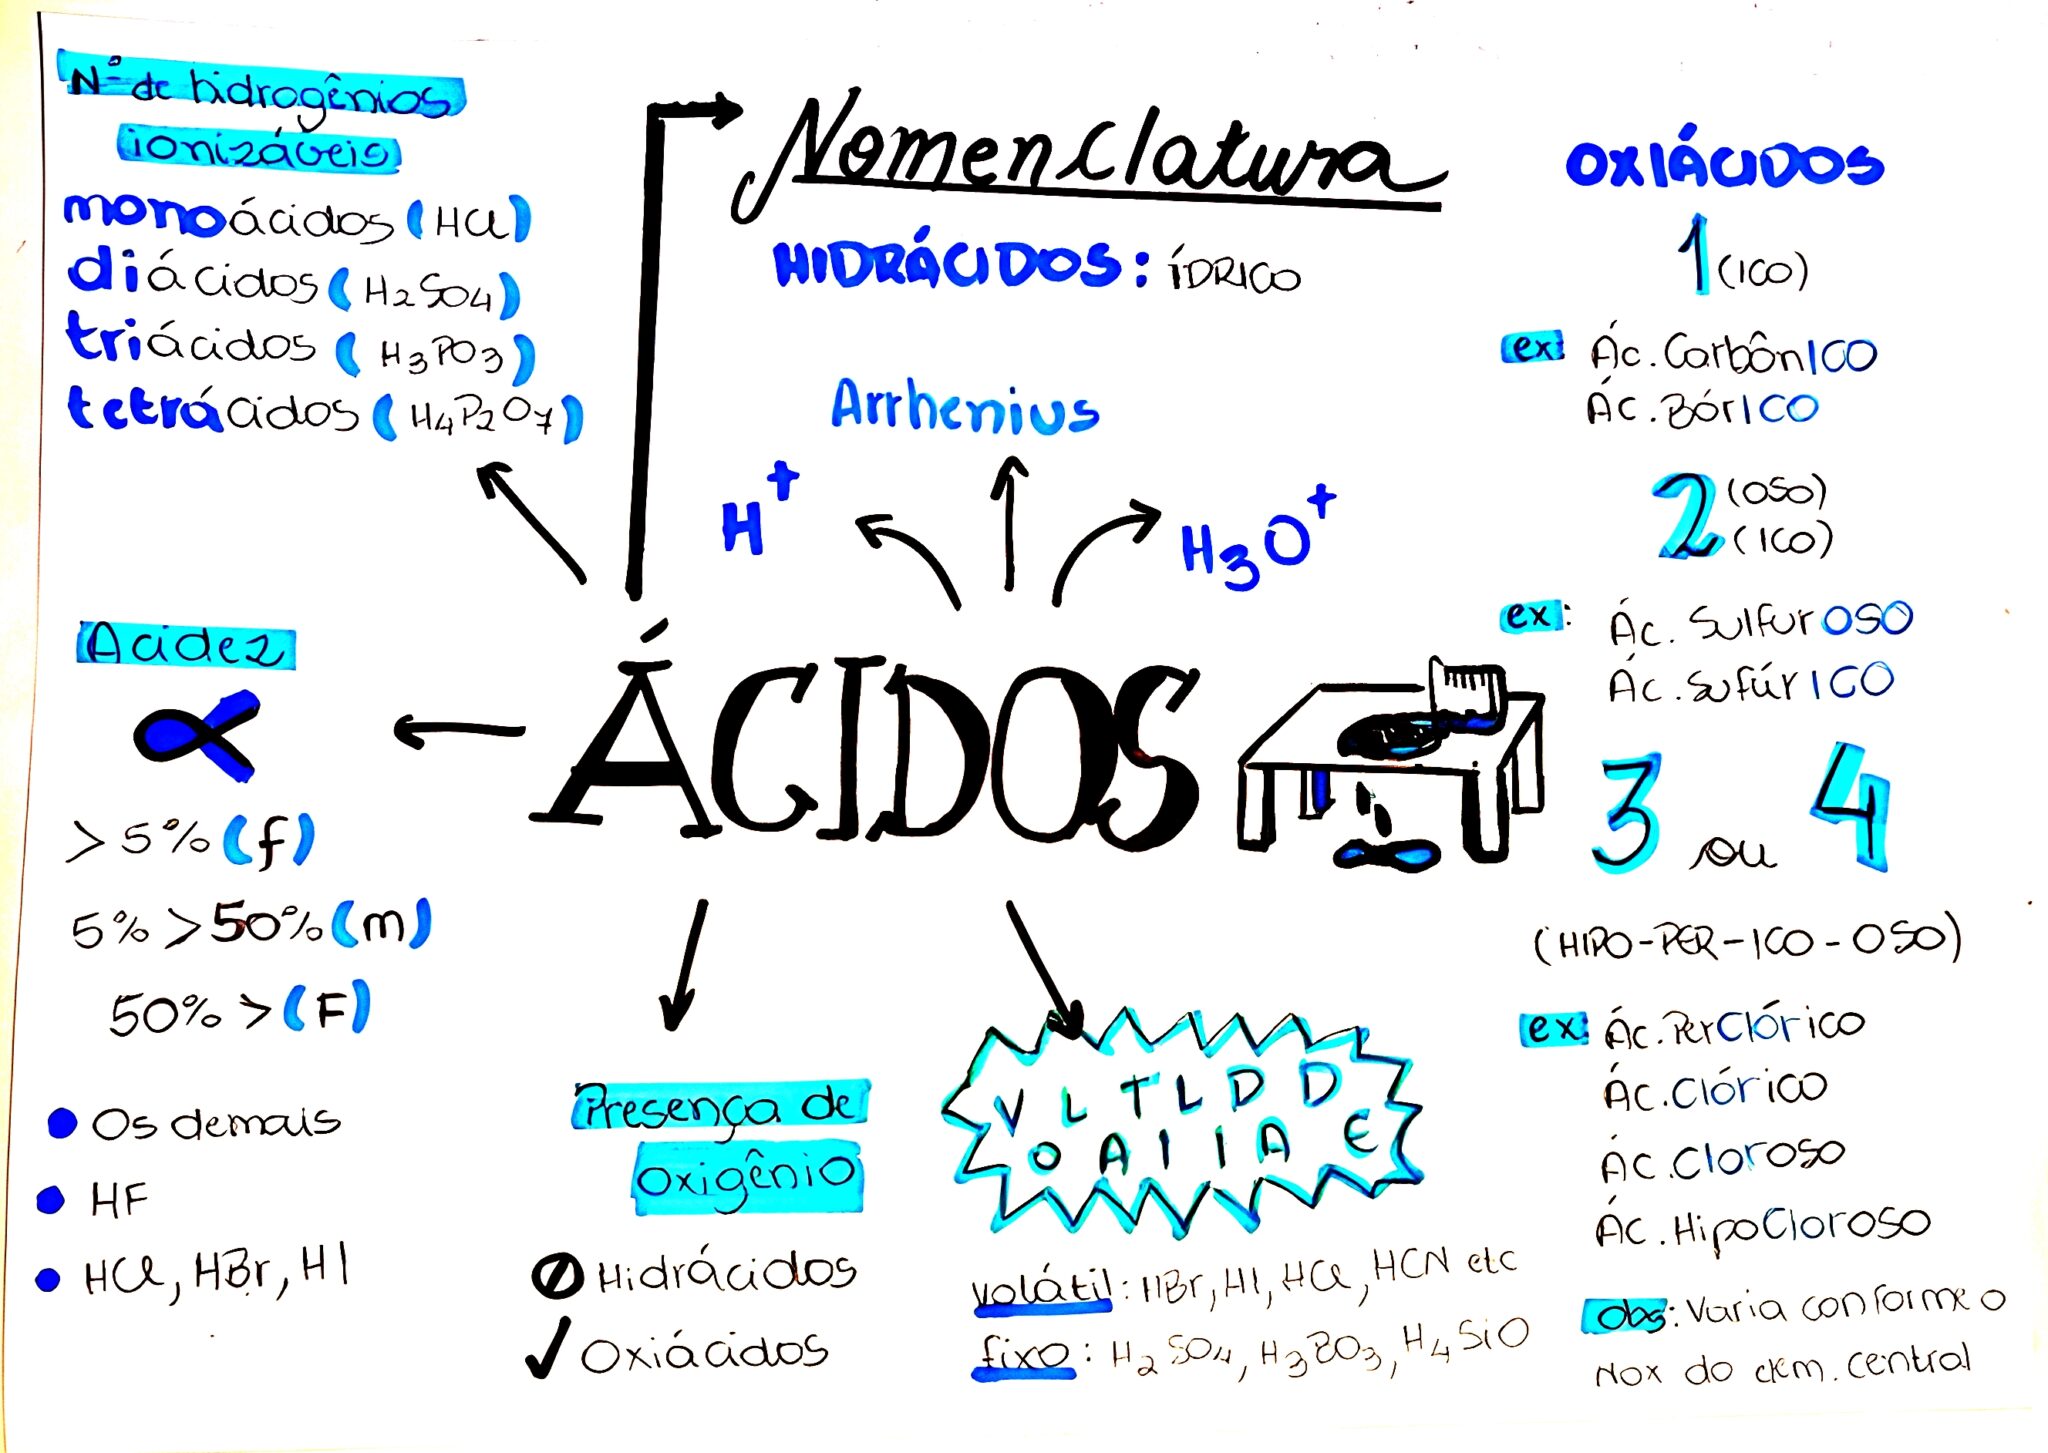 Nº de hidrogênios
ionizáveis
monoácidos (HCl)
diácidos (H2SO4)
triácidos (H3PO3)
tetrácidos (H4P2O7)
Nomenclatura
HIDRÁCIDOS: ÍDRICO
Arrhenius
H+
H3O+
ÁCIDOS
Acidez
α
> 5% (f)
5% > 50% (m)
50% > (F)
Os demais
HF
HCl, HBr, HI
Presença de
Oxigênio
Hidrácidos
Oxiácidos
V L T L D D
O A I I A E
volátil: HBr, HI, HCl, HCN etc
fixo: H2SO4, H3BO3, H4SiO
OXIÁCIDOS
1 (ICO)
ex: Ác. CarbônICO
Ác. BórICO
2 (OSO)
(ICO)
ex: Ác. SulfurOSO
Ác. SufúrICO
3 ou 4
(HIPO-PER-ICO-OSO)
ex: Ác. PerClórico
Ác. Clórico
Ác. Cloroso
Ác. HipoCloroso
Obs: Varia conforme o
Nox do elem. central